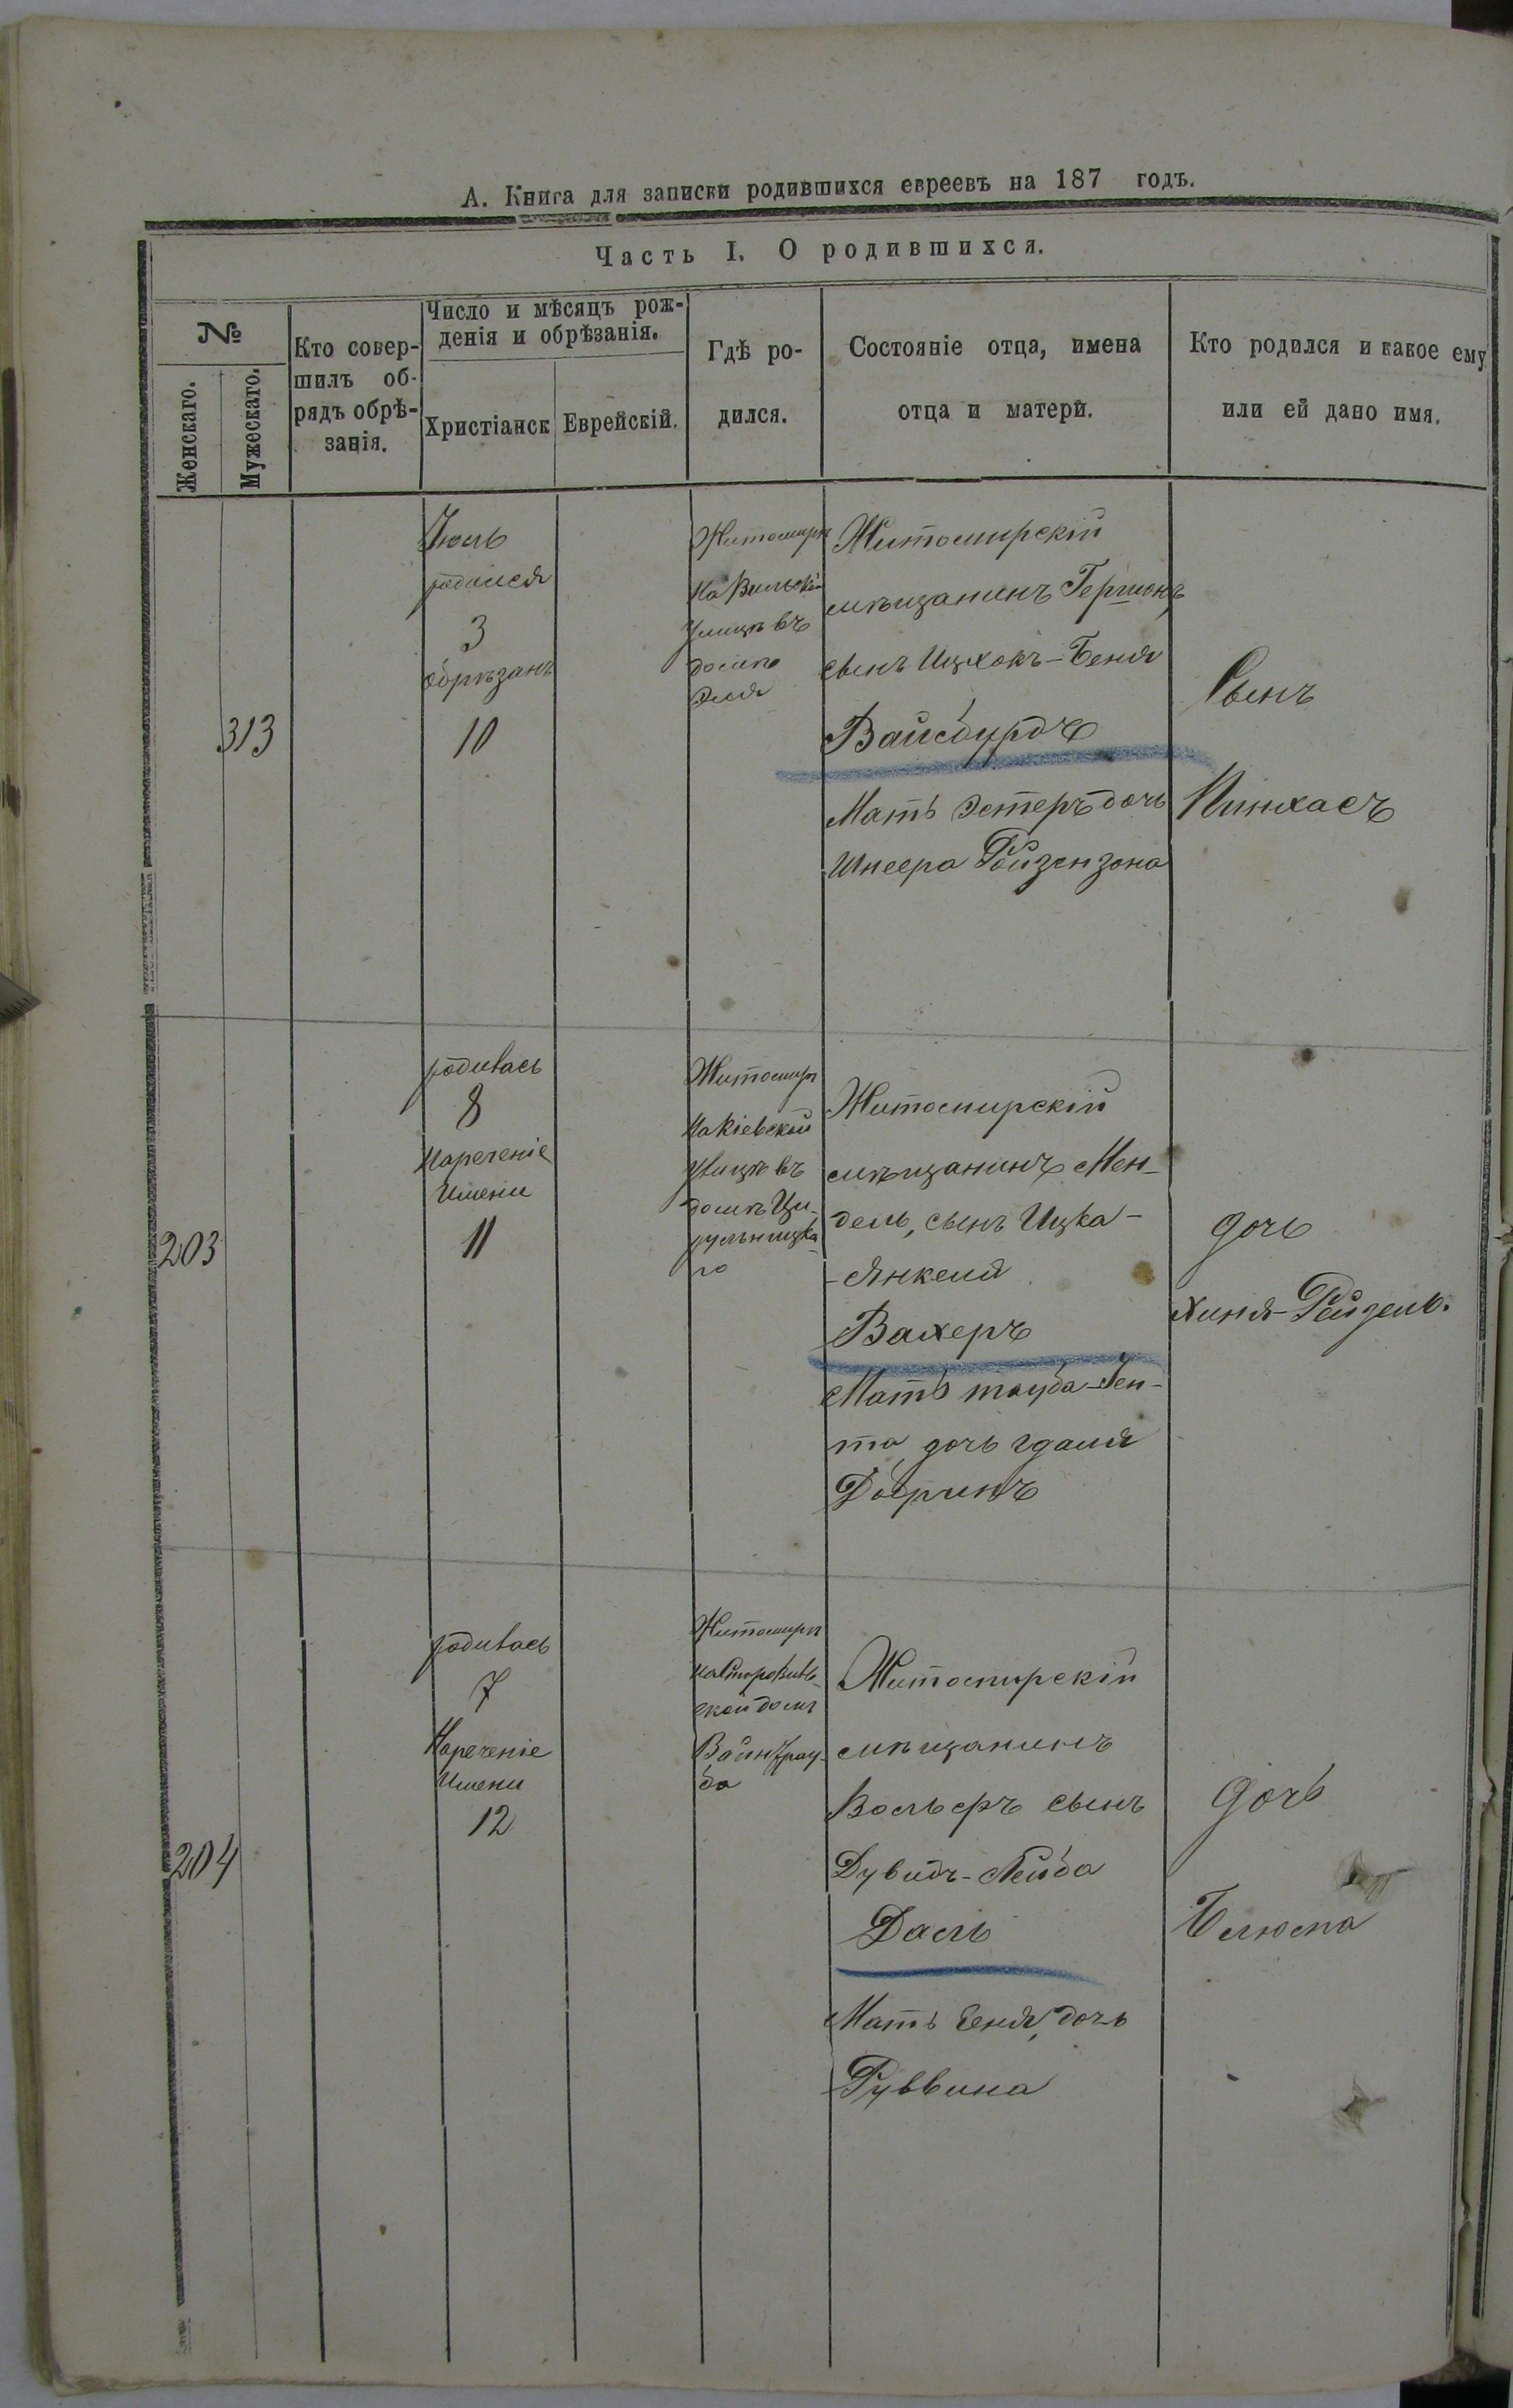 А. Книга для записки родившихся евреевъ на 187 годъ.
Часть I. О родившихся.
№
Женскаго.
Мужескаго.
Кто совер-
шилъ об-
рядъ обрѣ-
занія.
Число и мѣсяцъ рож-
денія и обрѣзанія.
Христіанск
Еврейскій.
Гдѣ ро-
дился.
Состояніе отца, имена
отца и матери.
Кто родился и какое ему
или ей дано имя.
313
Іюль
родился
3
обрѣзанъ
10
Житомирѣ
на Вильской
улицѣ въ
домѣ
Эля
Житомирскій
мѣщанинъ Гершонъ
сынъ Ицхокъ-Беня
Вайсбурдъ
Мать Эстеръ дочь
Шнеера Ройзензона
Сынъ
Пинхасъ
203
родилась
8
нареченіе
имени
11
Житомирѣ
на Кіевской
улицѣ въ
домѣ Ци-
рульницка
го
Житомирскій
мѣщанинъ Мен-
дель, сынъ Ицка-
-Янкеля
Вахеръ
Мать Тауба-Ген-
та дочь Гдаля
Добринъ
дочь
Хиня-Рейзель.
204
родилась
7
Нареченіе
имени
12
Житомирѣ
на Старовиль-
ской домѣ
Вайнтрау-
ба
Житомирскій
мѣщанинъ
Вольфъ сынъ
Дувидъ-Лейба
Даль
Мать Геня, дочь
Руввина
дочь
Блюма